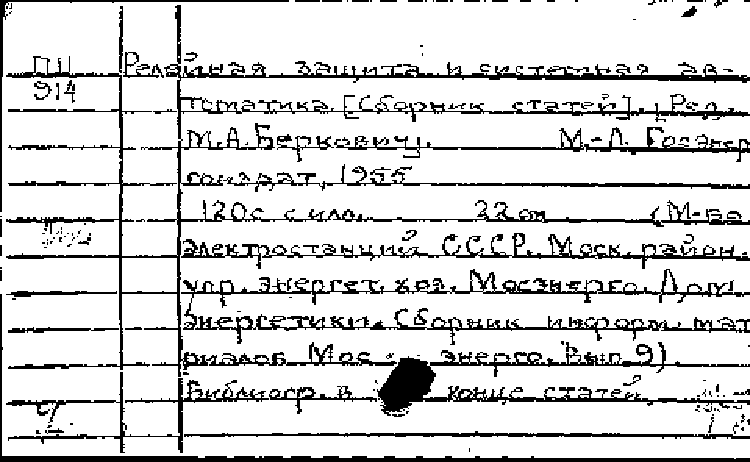 ПЦ Релейная защита и системная ав-
914 томатика [Сборник статей]. [Ред.
М.А. Беркович]. М.-Л. Госэнер
гоиздат, 1955
120с с илл. 22 см (М-во
электростанций СССР. Моск. район.
упр. энергет. хоз. Мосэнерго. Дом
энергетики. Сборник информ. мат
риалов Мос энерго. Вып. 9).
Библиогр. в конце статей